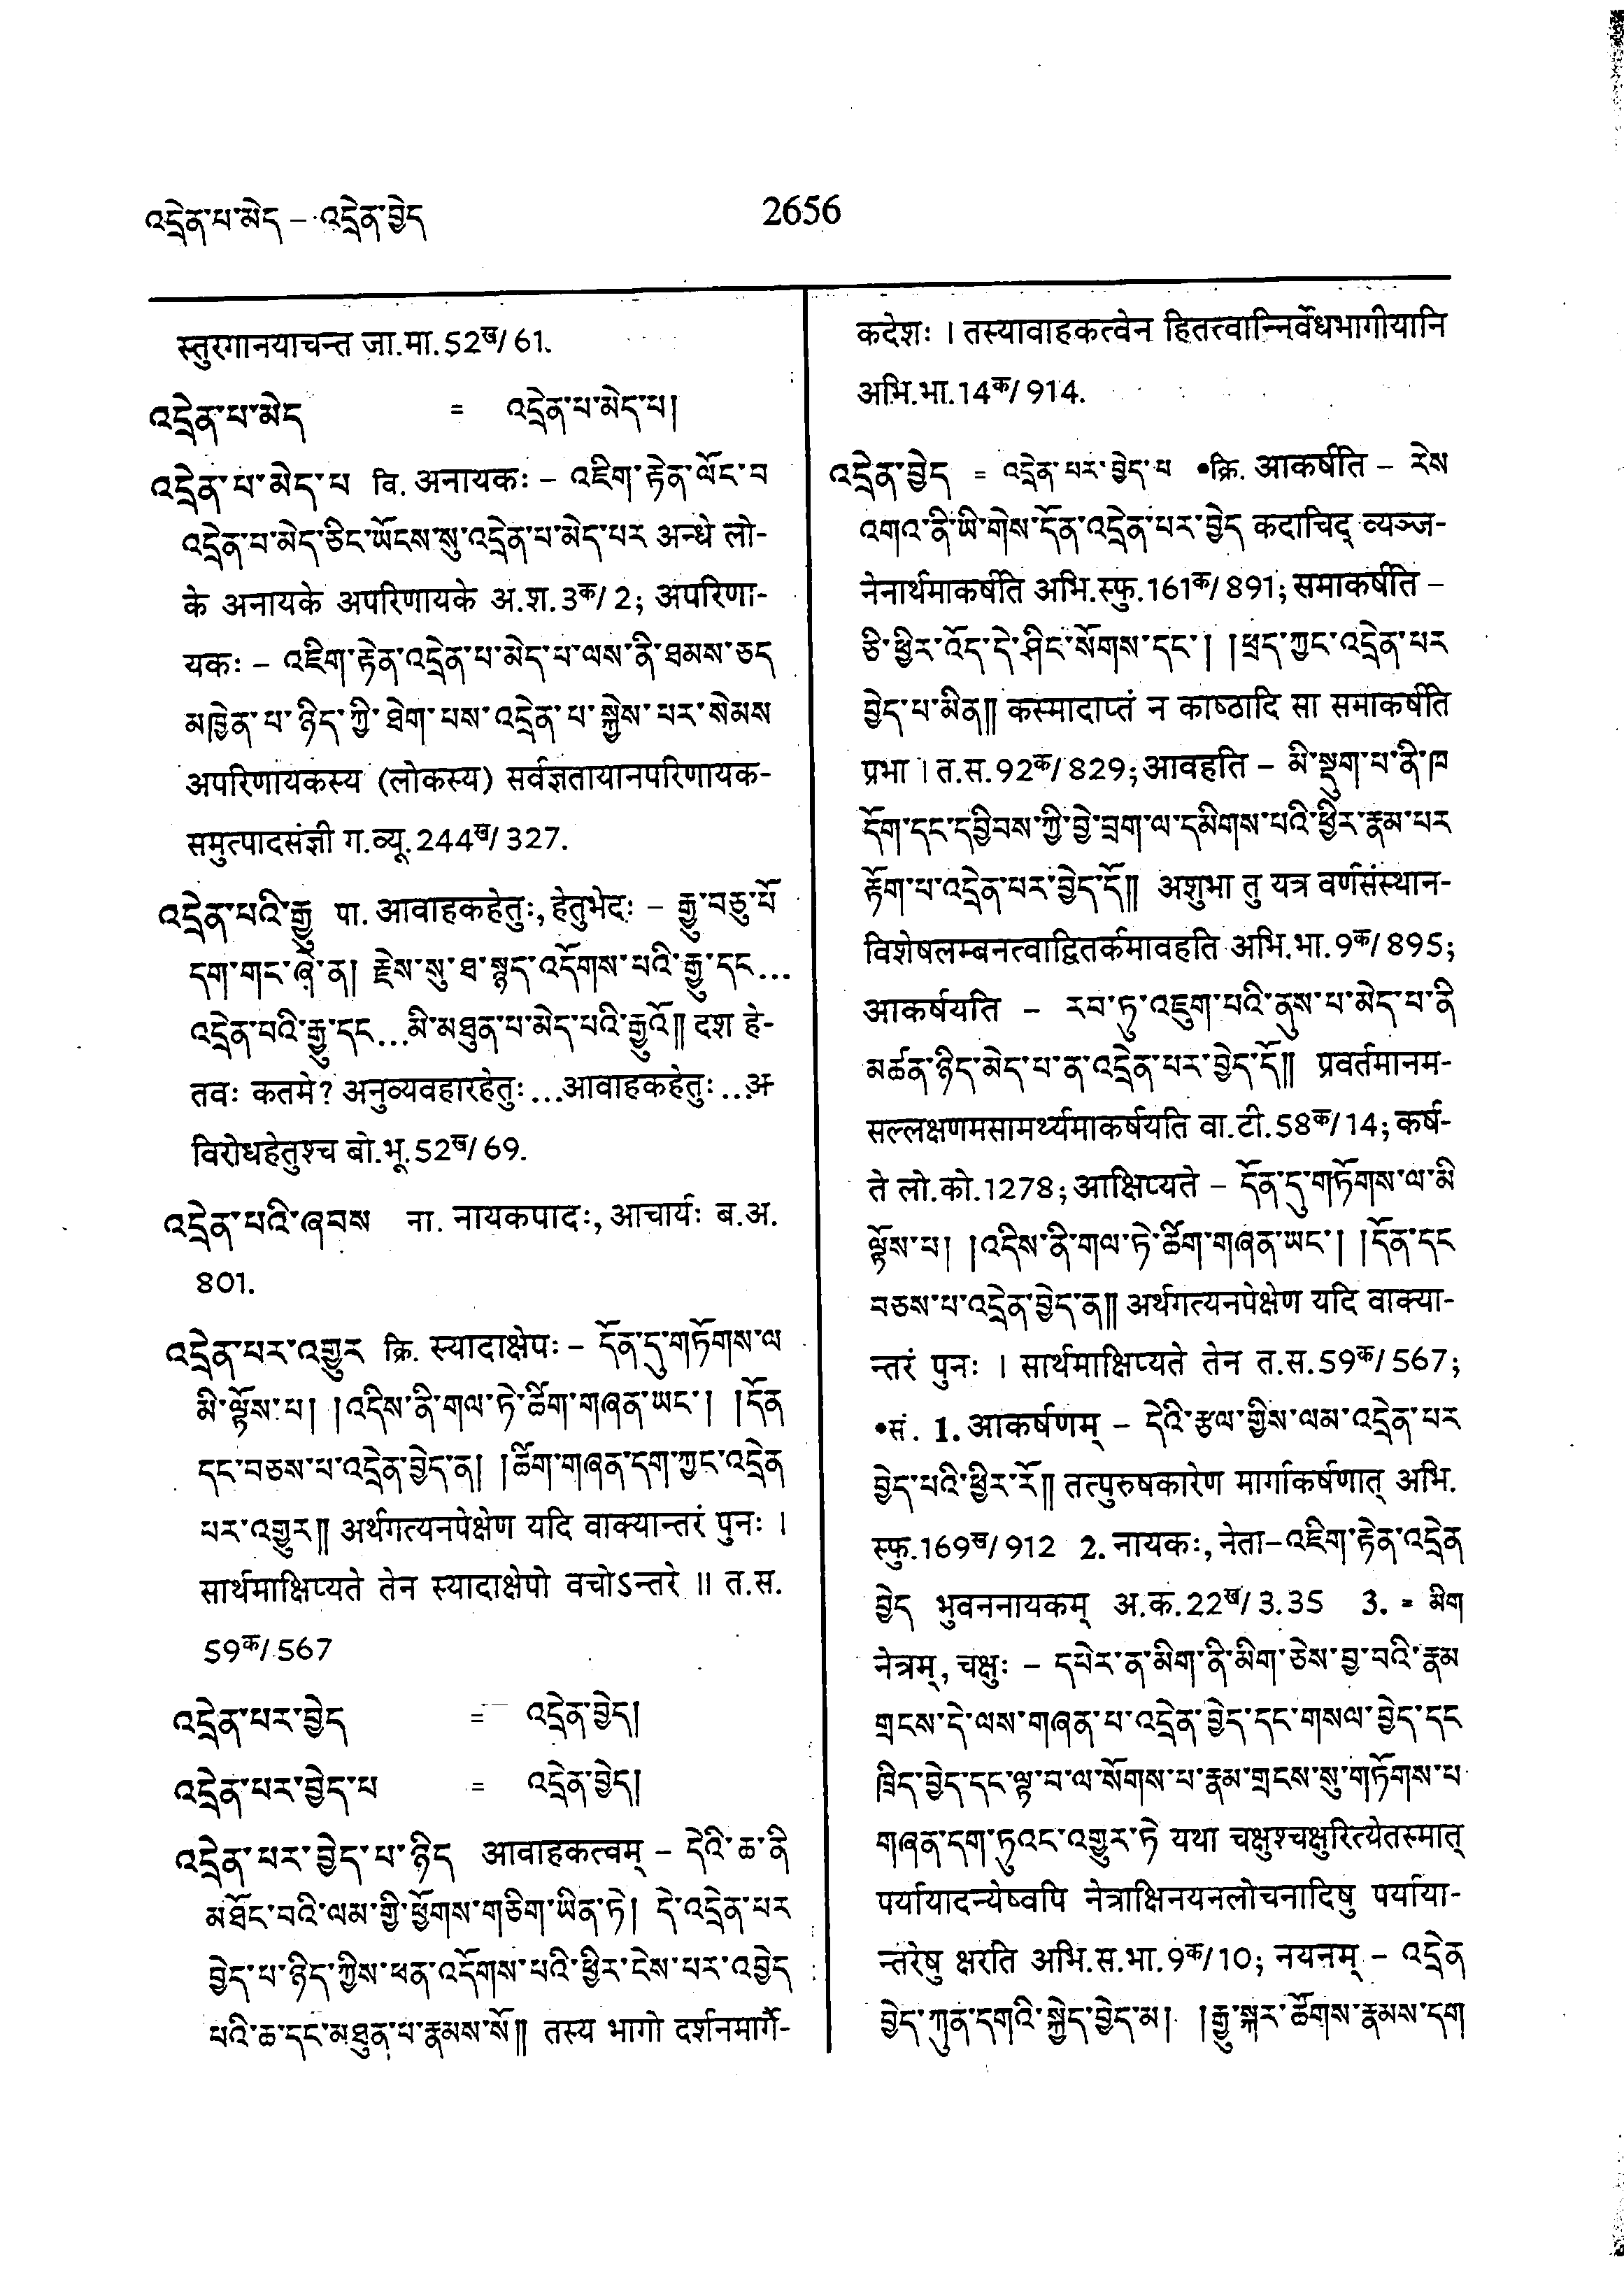 འདྲེན་པ་མེད – འདྲེན་བྱེད
2656
स्तुरगानयाचन्त जा.मा.52ख/61.
འདྲེན་པ་མེད = འདྲེན་པ་མེད་པ།
འདྲེན་པ་མེད་པ वि. अनायकः – འཇིག་རྟེན་ལོང་བ
འདྲེན་པ་མེད་ཅིང་ཡོངས་སུ་འདྲེན་པ་མེད་པར अन्धे लो-
के अनायके अपरिणायके अ.श.3क/2; अपरिणा-
यकः – འཇིག་རྟེན་འདྲེན་པ་མེད་པ་ལས་ནི་ཐམས་ཅད
མཁྱེན་པ་ཉིད་ཀྱི་ཐེག་པས་འདྲེན་པ་སྐྱེས་པར་སེམས
अपरिणायकस्य (लोकस्य) सर्वज्ञतायानपरिणायक-
समुत्पादसंज्ञी ग.व्यू.244ख/327.
འདྲེན་པའི་རྒྱུ पा. आवाहकहेतुः, हेतुभेदः – རྒྱུ་བཅུ་པོ
དག་གང་ཞེ་ན། རྗེས་སུ་ཐ་སྙད་འདོགས་པའི་རྒྱུ་དང...
འདྲེན་པའི་རྒྱུ་དང...མི་མཐུན་པ་མེད་པའི་རྒྱུའོ།། दश हे-
तवः कतमे? अनुव्यवहारहेतुः...आवाहकहेतुः...अ-
विरोधहेतुश्च बो.भू.52ख/69.
འདྲེན་པའི་ཞབས ना. नायकपादः, आचार्यः ब.अ.
801.
འདྲེན་པར་འགྱུར क्रि. स्यादाक्षेपः – དོན་དུ་གཏོགས་ལ
མི་ལྟོས་པ། །འདིས་ནི་གལ་ཏེ་ཚིག་གཞན་ཡང་། །དོན
དང་བཅས་པ་འདྲེན་བྱེད་ན། །ཚིག་གཞན་དག་ཀྱང་འདྲེན
པར་འགྱུར།། अर्थगत्यनपेक्षेण यदि वाक्यान्तरं पुनः ।
सार्थमाक्षिप्यते तेन स्यादाक्षेपो वचोऽन्तरे ॥ त.स.
59क/567
འདྲེན་པར་བྱེད = འདྲེན་བྱེད།
འདྲེན་པར་བྱེད་པ = འདྲེན་བྱེད།
འདྲེན་པར་བྱེད་པ་ཉིད आवाहकत्वम् – དེའི་ཆ་ནི
མཐོང་བའི་ལམ་གྱི་ཕྱོགས་གཅིག་ཡིན་ཏེ། དེ་འདྲེན་པར
བྱེད་པ་ཉིད་ཀྱིས་ཕན་འདོགས་པའི་ཕྱིར་ངེས་པར་འབྱེད
པའི་ཆ་དང་མཐུན་པ་རྣམས་སོ།། तस्य भागो दर्शनमार्गै-
कदेशः । तस्यावाहकत्वेन हितत्वान्निर्वेधभागीयानि
अभि.भा.14क/914.
འདྲེན་བྱེད = འདྲེན་པར་བྱེད་པ •क्रि. आकर्षति – རེས
འགའ་ནི་ཡི་གེས་དོན་འདྲེན་པར་བྱེད कदाचिद् व्यञ्ज-
नेनार्थमाकर्षति अभि.स्फु.161क/891; समाकर्षति –
ཅི་ཕྱིར་འོད་དེ་ཤིང་སོགས་དང་། །ཕྲད་ཀྱང་འདྲེན་པར
བྱེད་པ་མིན།། कस्मादाप्तं न काष्ठादि सा समाकर्षति
प्रभा । त.स.92क/829; आवहति – མི་སྡུག་པ་ནི་ཁ
དོག་དང་དབྱིབས་ཀྱི་བྱེ་བྲག་ལ་དམིགས་པའི་ཕྱིར་རྣམ་པར
རྟོག་པ་འདྲེན་པར་བྱེད་དོ།། अशुभा तु यत्र वर्णसंस्थान-
विशेषलम्बनत्वाद्वितर्कमावहति अभि.भा.9क/895;
आकर्षयति – རབ་ཏུ་འཇུག་པའི་ནུས་པ་མེད་པ་ནི
མཚན་ཉིད་མེད་པ་ན་འདྲེན་པར་བྱེད་དོ།། प्रवर्तमानम-
सल्लक्षणमसामर्थ्यमाकर्षयति वा.टी.58क/14; कर्ष-
ते लो.को.1278; आक्षिप्यते – དོན་དུ་གཏོགས་ལ་མི
ལྟོས་པ། །འདིས་ནི་གལ་ཏེ་ཚིག་གཞན་ཡང་། །དོན་དང
བཅས་པ་འདྲེན་བྱེད་ན།། अर्थगत्यनपेक्षेण यदि वाक्या-
न्तरं पुनः । सार्थमाक्षिप्यते तेन त.स.59क/567;
•सं. 1. आकर्षणम् – དེའི་རྩལ་གྱིས་ལམ་འདྲེན་པར
བྱེད་པའི་ཕྱིར་རོ།། तत्पुरुषकारेण मार्गाकर्षणात् अभि.
स्फु.169ख/912 2. नायकः, नेता–འཇིག་རྟེན་འདྲེན
བྱེད भुवननायकम् अ.क.22ख/3.35 3. = མིག
नेत्रम्, चक्षुः – དཔེར་ན་མིག་ནི་མིག་ཅེས་བྱ་བའི་རྣམ
གྲངས་དེ་ལས་གཞན་པ་འདྲེན་བྱེད་དང་གསལ་བྱེད་དང
ཁྲིད་བྱེད་དང་ལྟ་བ་ལ་སོགས་པ་རྣམ་གྲངས་སུ་གཏོགས་པ
གཞན་དག་ཏུའང་འགྱུར་ཏེ यथा चक्षुश्चक्षुरित्येतस्मात्
पर्यायादन्येष्वपि नेत्राक्षिनयनलोचनादिषु पर्याया-
न्तरेषु क्षरति अभि.स.भा.9क/10; नयनम् – འདྲེན
བྱེད་ཀུན་དགའི་སྐྱེད་བྱེད་མ། །རྒྱུ་སྐར་ཚོགས་རྣམས་དག